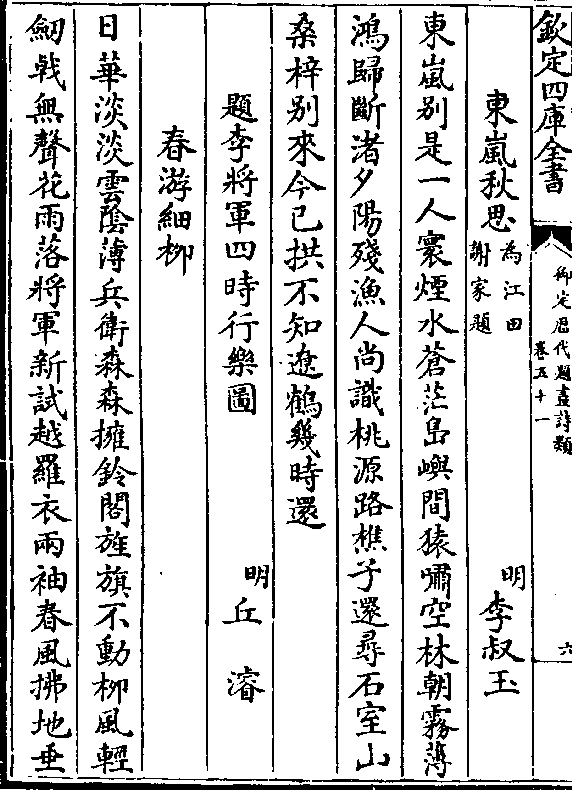 欽定四庫全書
御定歷代題畫詩類
卷五十一
六
東嵐秋思
為江田
謝家題
明
李叔玉
東嵐别是一人寰煙水蒼茫島嶼間猿嘯空林朝霧薄
鴻歸斷渚夕陽殘漁人尚識桃源路樵子還尋石室山
桑梓别來今已拱不知遼鶴幾時還
題李將軍四時行樂圖
明
丘濬
春游細柳
日華淡淡雲陰薄兵衛森森擁鈴閣旌旗不動柳風輕
劒戟無聲花雨落將軍新試越羅衣兩袖春風拂地垂